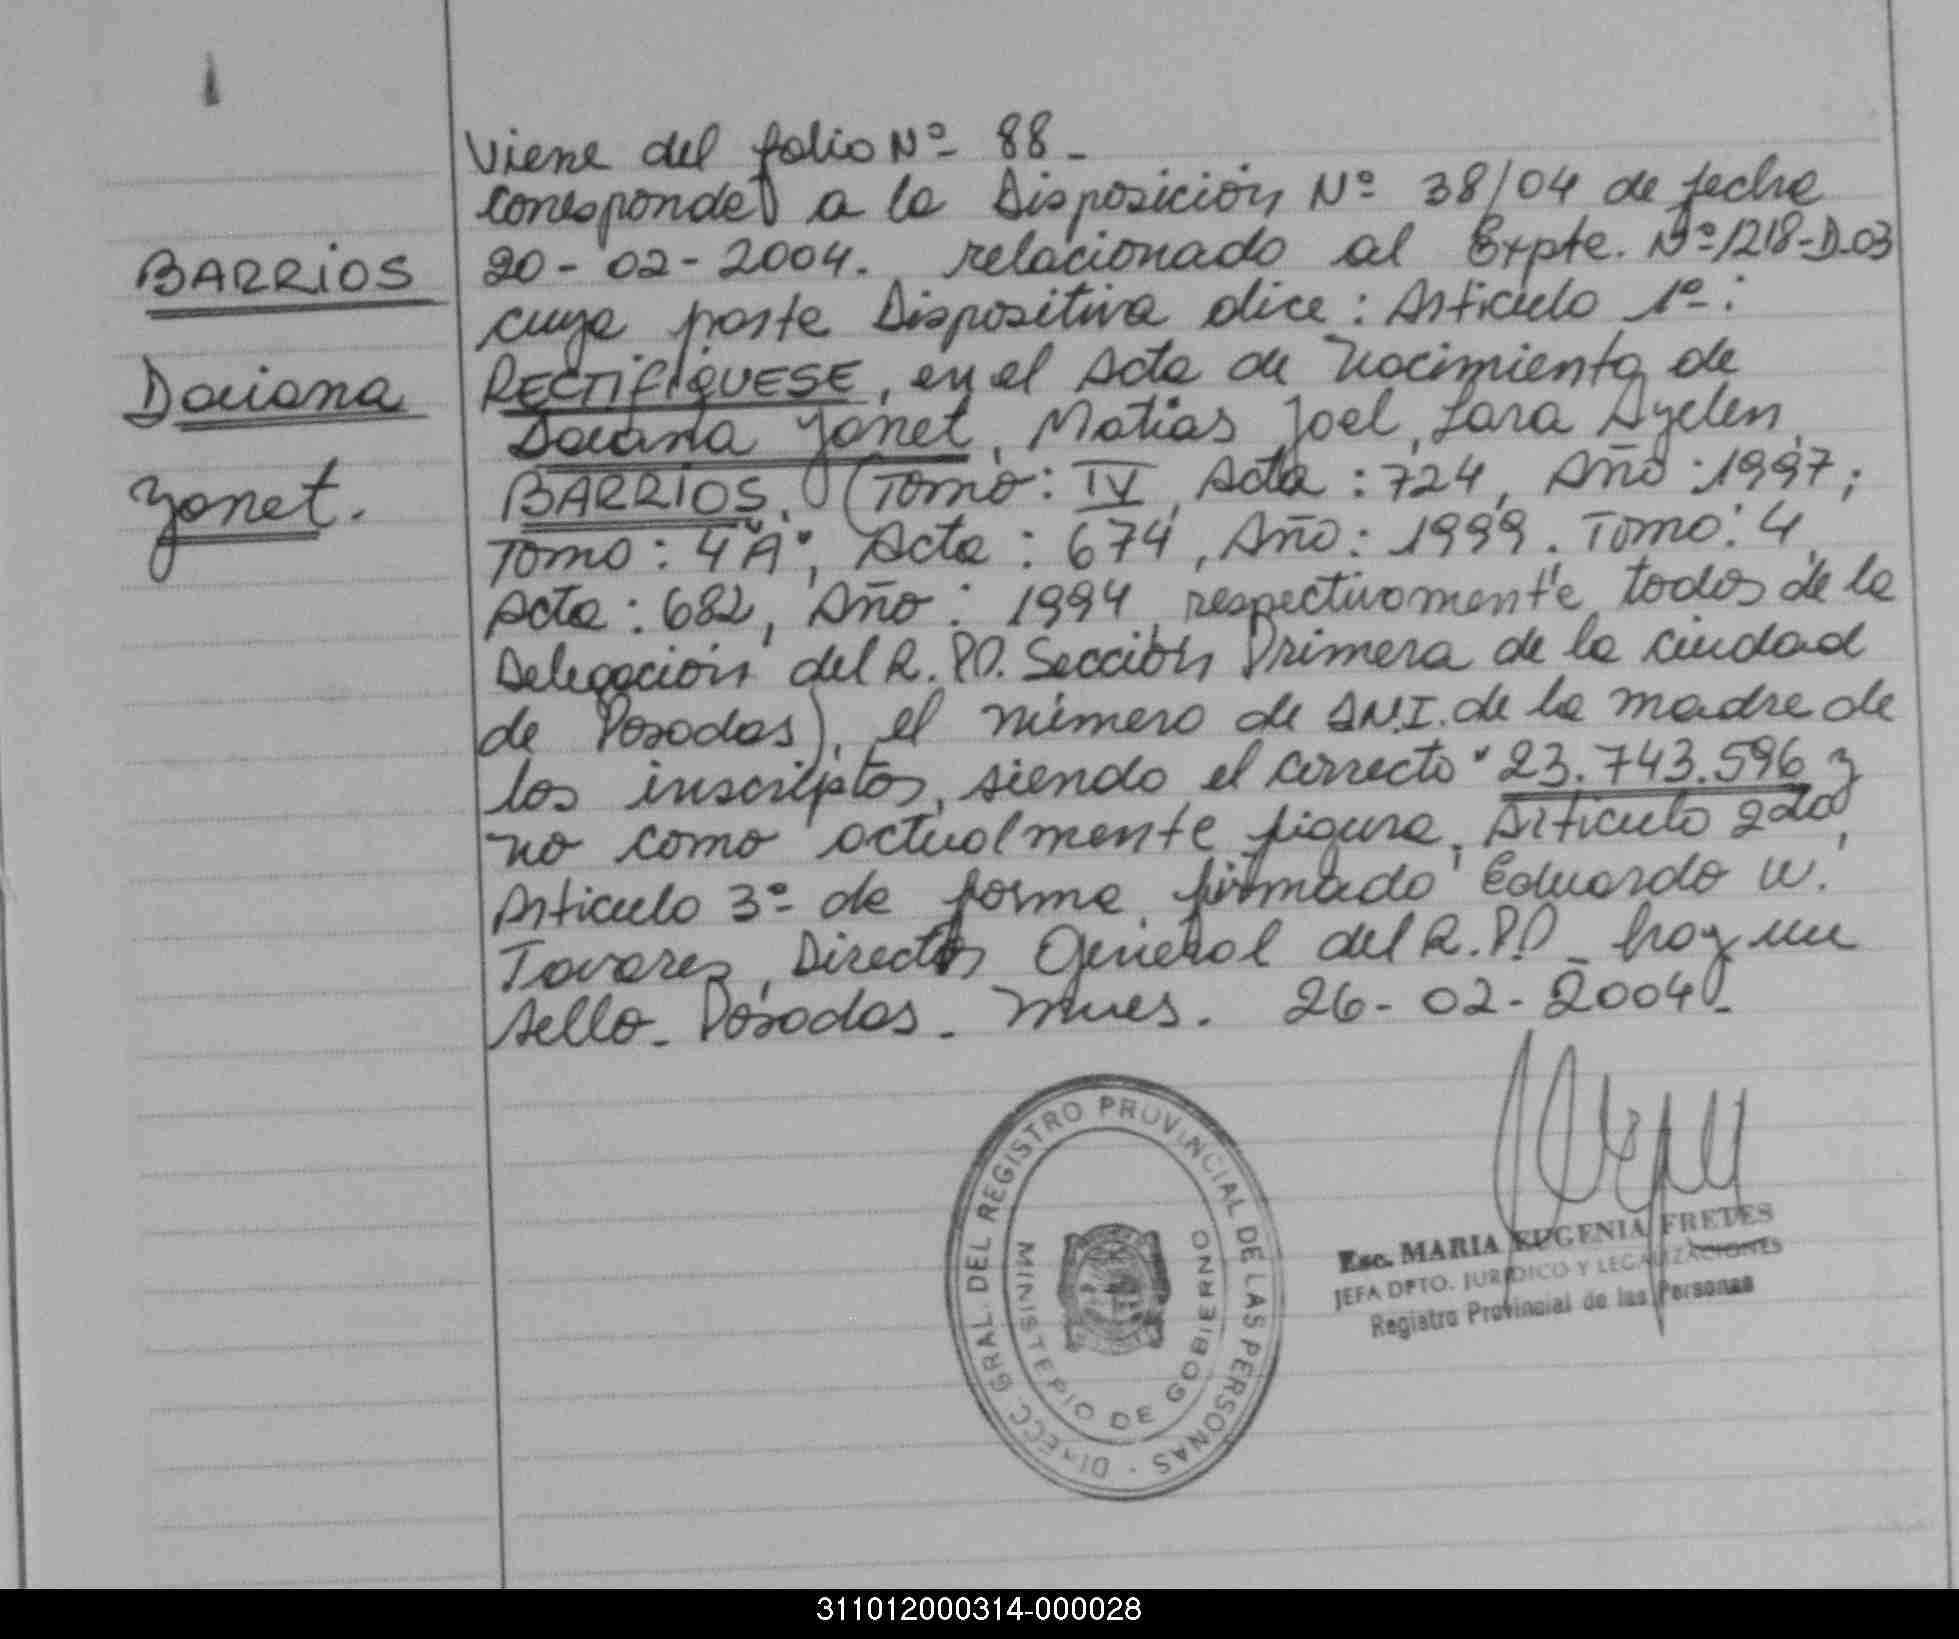 Viene del folio Nº 88 -
corresponde a la Disposición Nº 38/04 de fecha
BARRIOS
20-02-2004. relacionado al Expte. Nº 1218-D-03
cuya parte Dispositiva dice: Articulo 1º:
Daiana
RECTIFIQUESE, en el Acta de Nacimiento de
Daiana Yanet, Matias Joel, Lara Ayelen
Yanet.
BARRIOS, (Tomo: IV, Acta: 724, Año: 1997;
Tomo: 4"A", Acta: 674, Año: 1999. Tomo: 4,
Acta: 682, Año: 1994, respectivamente, todos de la
Delegación del R.P.P. Sección Primera de la ciudad
de Posadas), el número de D.N.I. de la madre de
los inscriptos, siendo el correcto "23.743.596 y
no como actualmente figura, Articulo 2do,
Articulo 3º de forma, firmado Eduardo W.
Tavarez, Director General del R.P.P - hay un
sello - Posadas - Mnes. 26-02-2004 -
DIRECC. GRAL. DEL REGISTRO PROVINCIAL DE LAS PERSONAS
MINISTERIO DE GOBIERNO
Esc. MARIA EUGENIA FRETES
JEFA DPTO. JURIDICO Y LEGALIZACIONES
Registro Provincial de las Personas
311012000314-000028